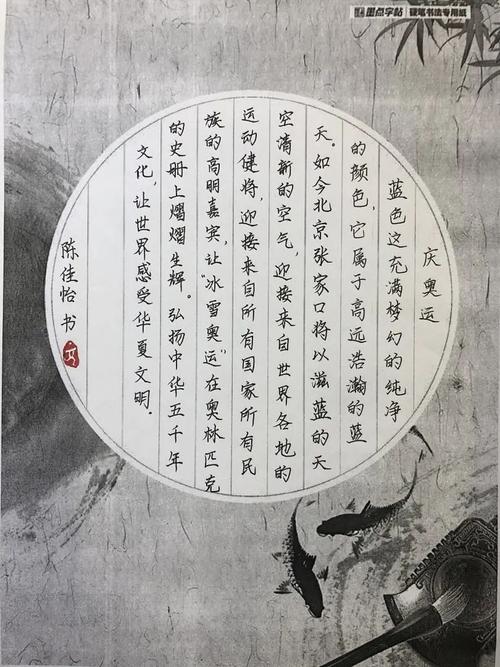 墨点字帖 硬笔书法专用纸
庆奥运
蓝色这充满梦幻的纯净
的颜色，它属于高远浩瀚的蓝
天。如今北京张家口将以滋蓝的天
空清新的空气，迎接来自世界各地的
运动健将，迎接来自所有国家所有民
族的高明嘉宾，让“冰雪奥运”在奥林匹克
的史册上熠熠生辉。弘扬中华五千年
文化，让世界感受华夏文明。
陈佳怡书